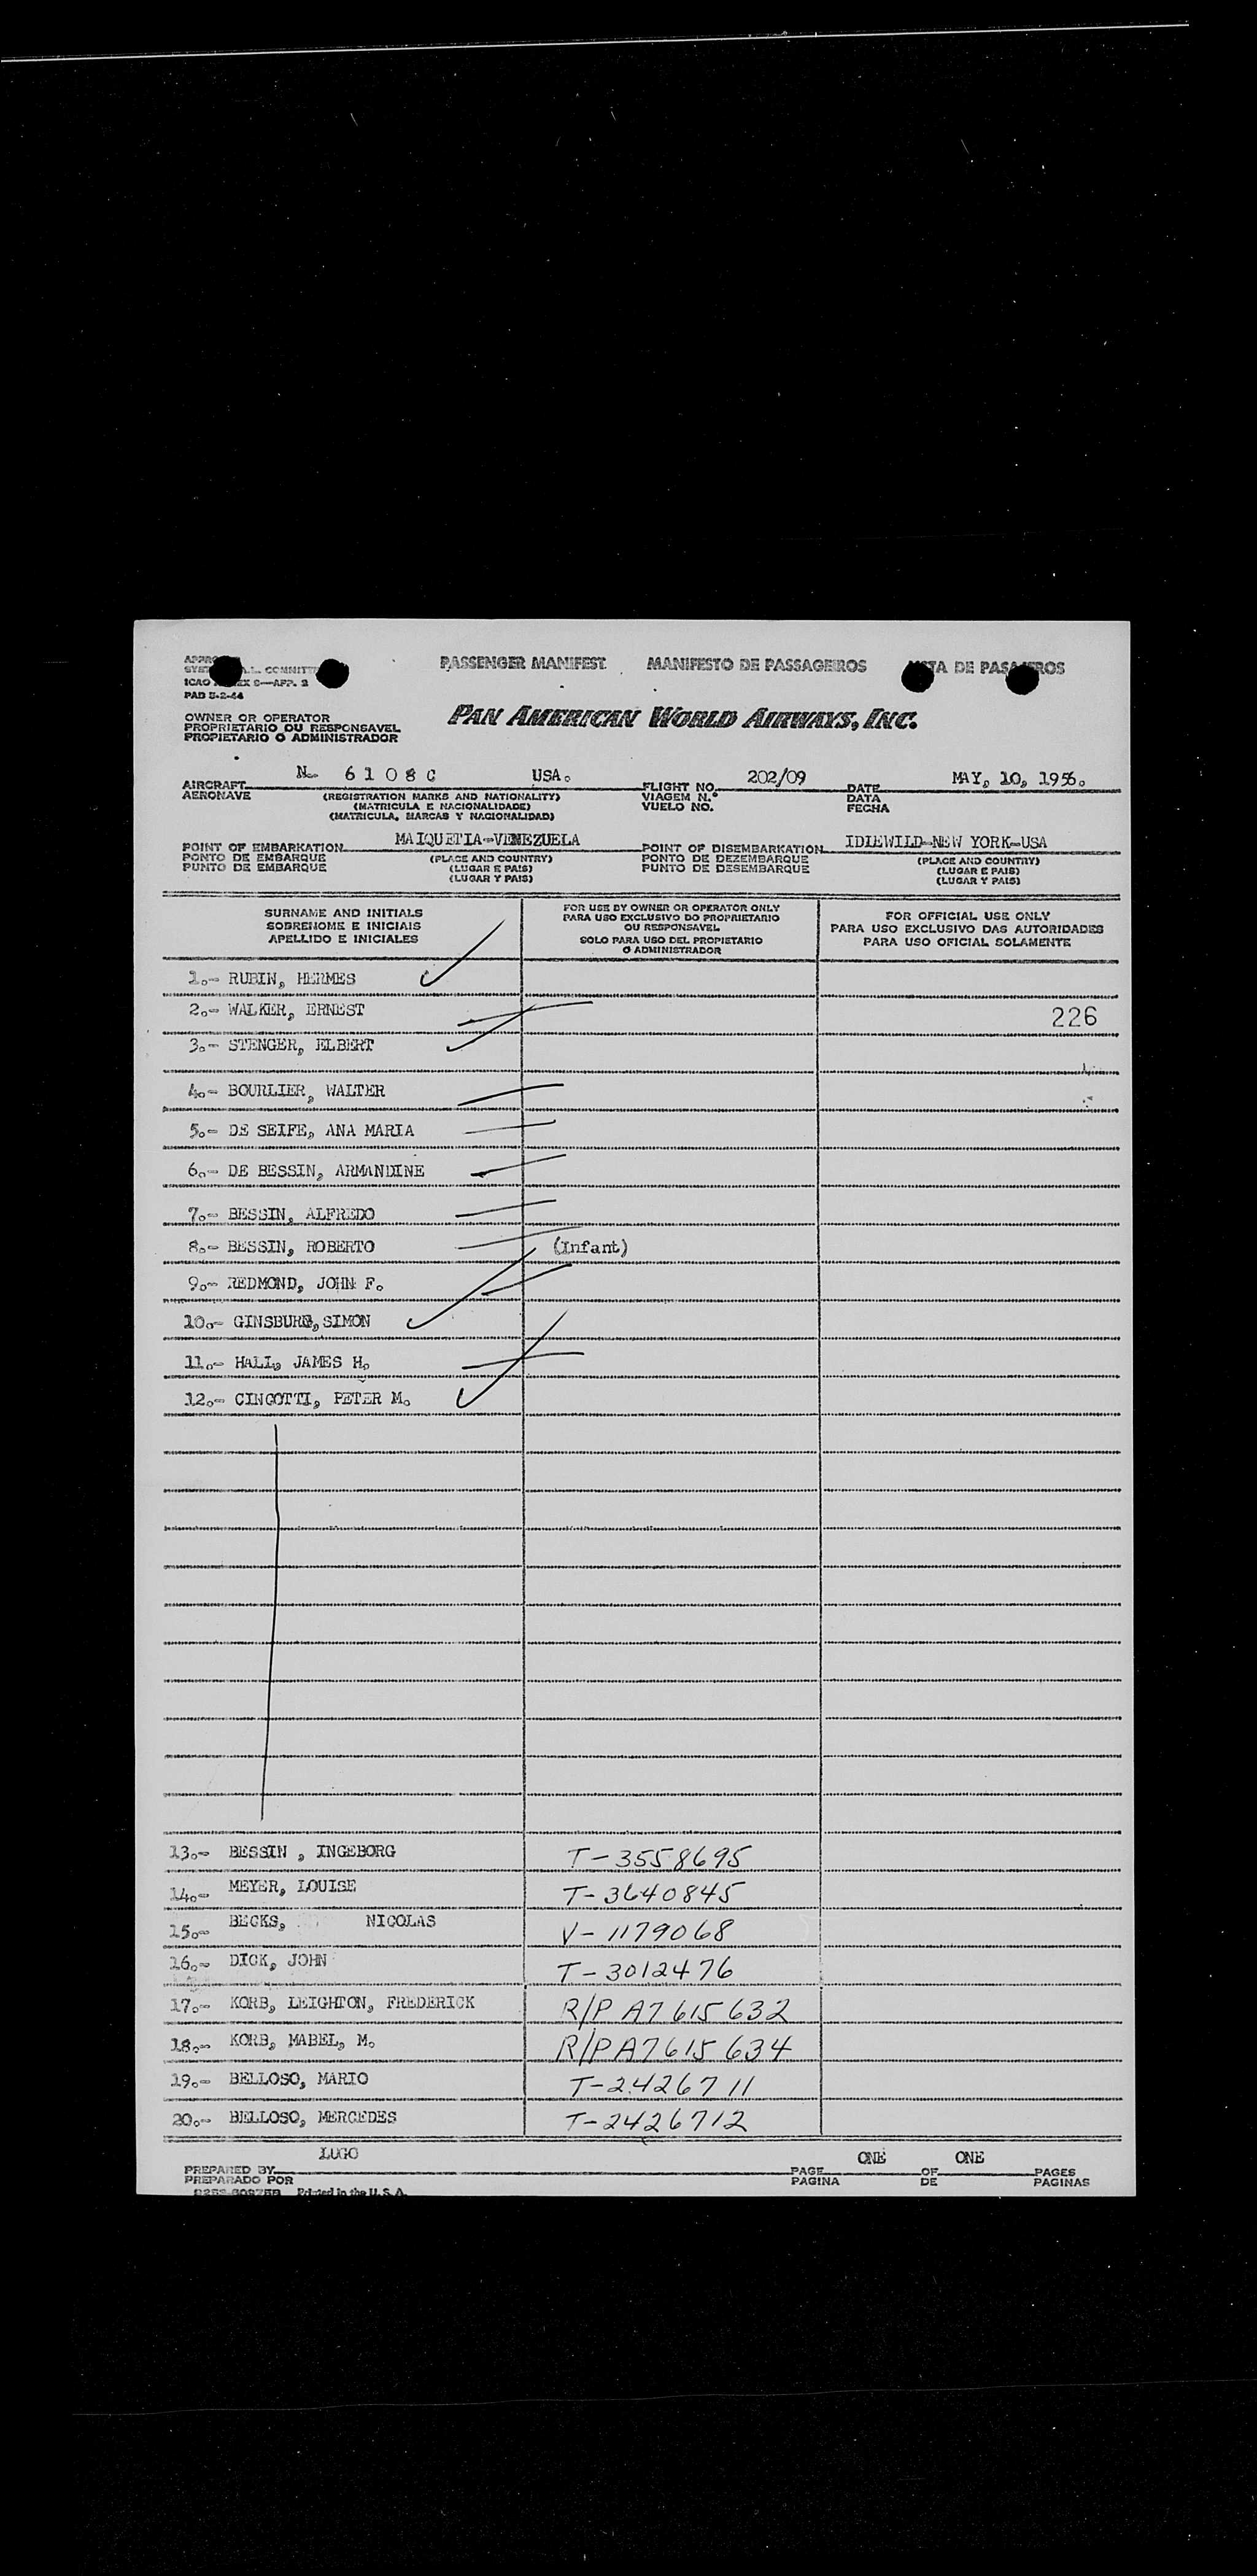 PASSENGER MANIFEST MANIFESTO DE PASSAGEIROS DE
ICAO
PAD 5-2-44
OWNER OR OPERATOR
PROPRIETARIO OU RESPONSAVEL
PROPIETARIO O ADMINISTRADOR
PAN AMERICAN WORLD AIRWAYS, INC.
AIRCRAFT N- 6108C USA. FLIGHT NO. 202/09 DATE MAY, 10, 1956.
AERONAVE (REGISTRATION MARKS AND NATIONALITY) VIAGEM N.º DATA
(MATRICULA E NACIONALIDADE) VUELO NO. FECHA
(MATRICULA, MARCAS Y NACIONALIDAD)
POINT OF EMBARKATION MAIQUETIA-VENEZUELA POINT OF DISEMBARKATION IDLEWILD-NEW YORK-USA
PONTO DE EMBARQUE (PLACE AND COUNTRY) PONTO DE DEZEMBARQUE (PLACE AND COUNTRY)
PUNTO DE EMBARQUE (LUGAR E PAIS) PUNTO DE DESEMBARQUE (LUGAR E PAIS)
(LUGAR Y PAIS) (LUGAR Y PAIS)
SURNAME AND INITIALS
SOBRENOME E INICIAIS
APELLIDO E INICIALES
FOR USE BY OWNER OR OPERATOR ONLY
PARA USO EXCLUSIVO DO PROPRIETARIO
OU RESPONSAVEL
SOLO PARA USO DEL PROPIETARIO
O ADMINISTRADOR
FOR OFFICIAL USE ONLY
PARA USO EXCLUSIVO DAS AUTORIDADES
PARA USO OFICIAL SOLAMENTE
1.- RUBIN, HERMES
2.- WALKER, ERNEST 226
3.- STENGER, ELBERT
4.- BOURLIER, WALTER
5.- DE SEIFE, ANA MARIA
6.- DE BESSIN, ARMANDINE
7.- BESSIN, ALFREDO
8.- BESSIN, ROBERTO (Infant)
9.- REDMOND, JOHN F.
10.- GINSBURG, SIMON
11.- HALL, JAMES H.
12.- CINGOTTI, PETER M.
13.- BESSIN , INGEBORG T-3558695
14.- MEYER, LOUISE T-3640845
15.- BECKS, NICOLAS V-1179068
16.- DICK, JOHN T-3012476
17.- KORB, LEIGHTON, FREDERICK R/P A7615632
18.- KORB, MABEL, M. R/P A7615634
19.- BELLOSO, MARIO T-2426711
20.- BELLOSO, MERCEDES T-2426712
PREPARED BY LUGO PAGE ONE OF ONE PAGES
PREPARADO POR PAGINA DE PAGINAS
Printed in the U. S. A.